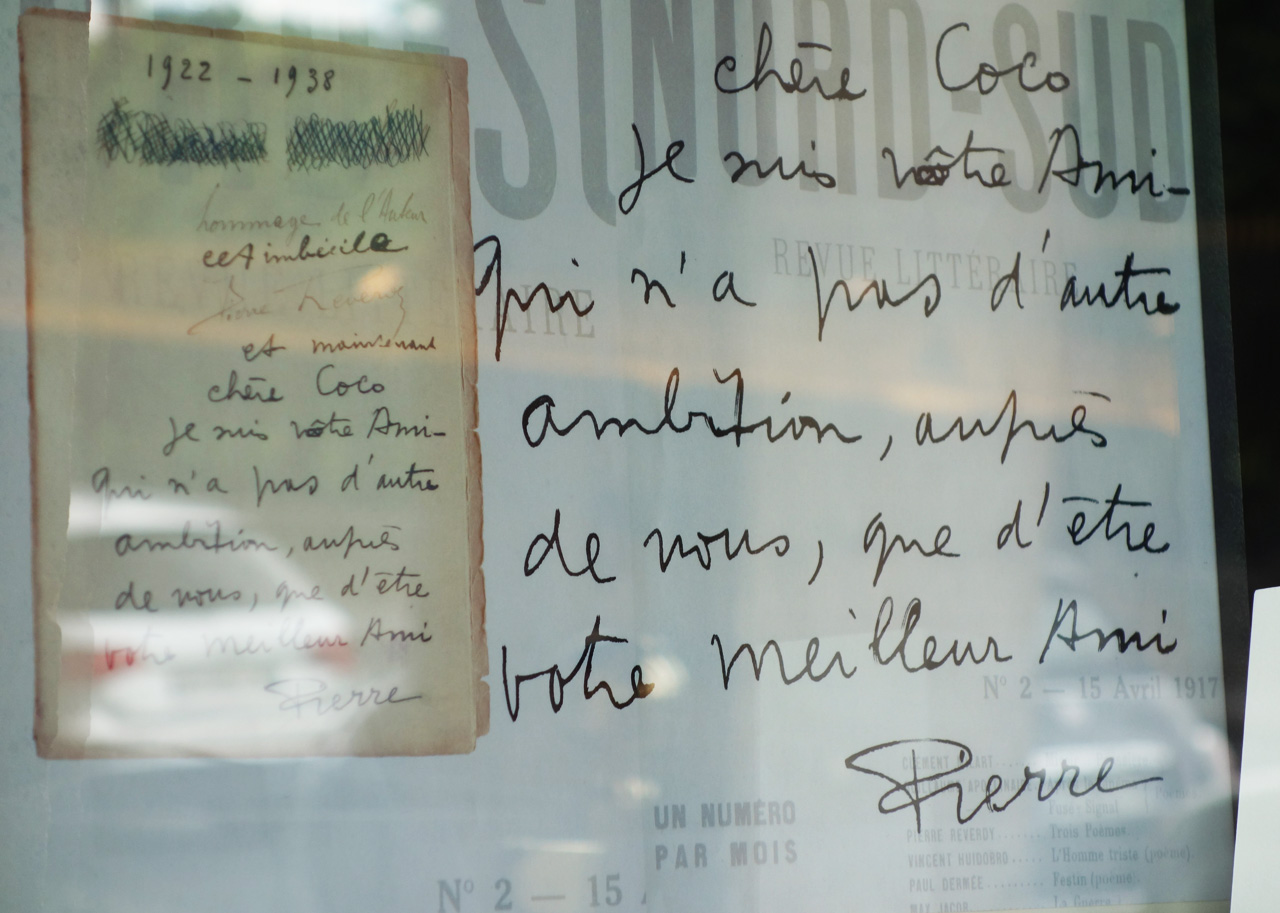 1922 - 1938
hommage de l'Auteur
cet imbécile
Pierre Reverdy
et maintenant
chère Coco
Je suis vôtre Ami-
qui n'a pas d'autre
ambition, auprès
de vous, que d'être
votre meilleur Ami
Pierre
chère Coco
Je suis vôtre Ami-
qui n'a pas d'autre
ambition, auprès
de vous, que d'être
votre meilleur Ami
Pierre
NORD-SUD
REVUE LITTÉRAIRE
Nº 2 — 15 Avril 1917
UN NUMÉRO
PAR MOIS
PIERRE REVERDY........ Trois Poèmes
VINCENT HUIDOBRO..... L'Homme triste (poème).
PAUL DERMÉE.......... Festin (poème
MAX JACOB
Nº 2 — 15